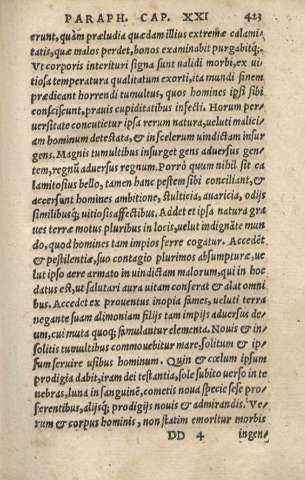 PARAPH. CAP. XXI 423
erunt, quàm præludia quædam illius extremæ calami-
tatis, quæ malos perdet, bonos examinabit purgabitq;.
Vt corporis interituri signa sunt ualidi morbi, ex ui-
tiosa temperatura qualitatum exorti, ita mundi finem
prædicant horrendi tumultus, quos homines ipsi sibi
consciscunt, prauis cupiditatibus infecti. Horum per-
uersitate concutietur ipsa rerum natura, ueluti malici-
am hominum detestata, & in scelerum uindictam insur
gens. Magnis tumultibus insurget gens aduersus gen-
tem, regnũ aduersus regnum. Porrò quum nihil sit ca
lamitosius bello, tamen hanc pestem sibi conciliant, &
accersunt homines ambitione, stulticia, auaricia, odijs
similibusq; uitiosis affectibus. Addet et ipsa natura gra
ues terræ motus pluribus in locis, uelut indignãte mun
do, quod homines tam impios ferre cogatur. Accedẽt
& pestilentiæ, suo contagio plurimos absumpturæ, ue
lut ipso aere armato in uindictam malorum, qui in hoc
datus est, ut salutari aura uitam conserat & alat omni
bus. Accedet ex prouentus inopia fames, ueluti terra
negante suam alimoniam filijs tam impijs aduersus de-
um, cui mutà quoq; famulantur elementa. Nouis & in-
solitis tumultibus commouebitur mare, solitum & ip-
sum seruire usibus hominum. Quin & cœlum ipsum
prodigia dabit, iram dei testantia, sole subito uerso in te
nebras, luna in sanguinẽ, cometis noua specie sese pro-
ferentibus, alijsq; prodigijs nouis & admirandis. Ve-
rum & corpus hominis, non statim emoritur morbis
DD 4 ingen